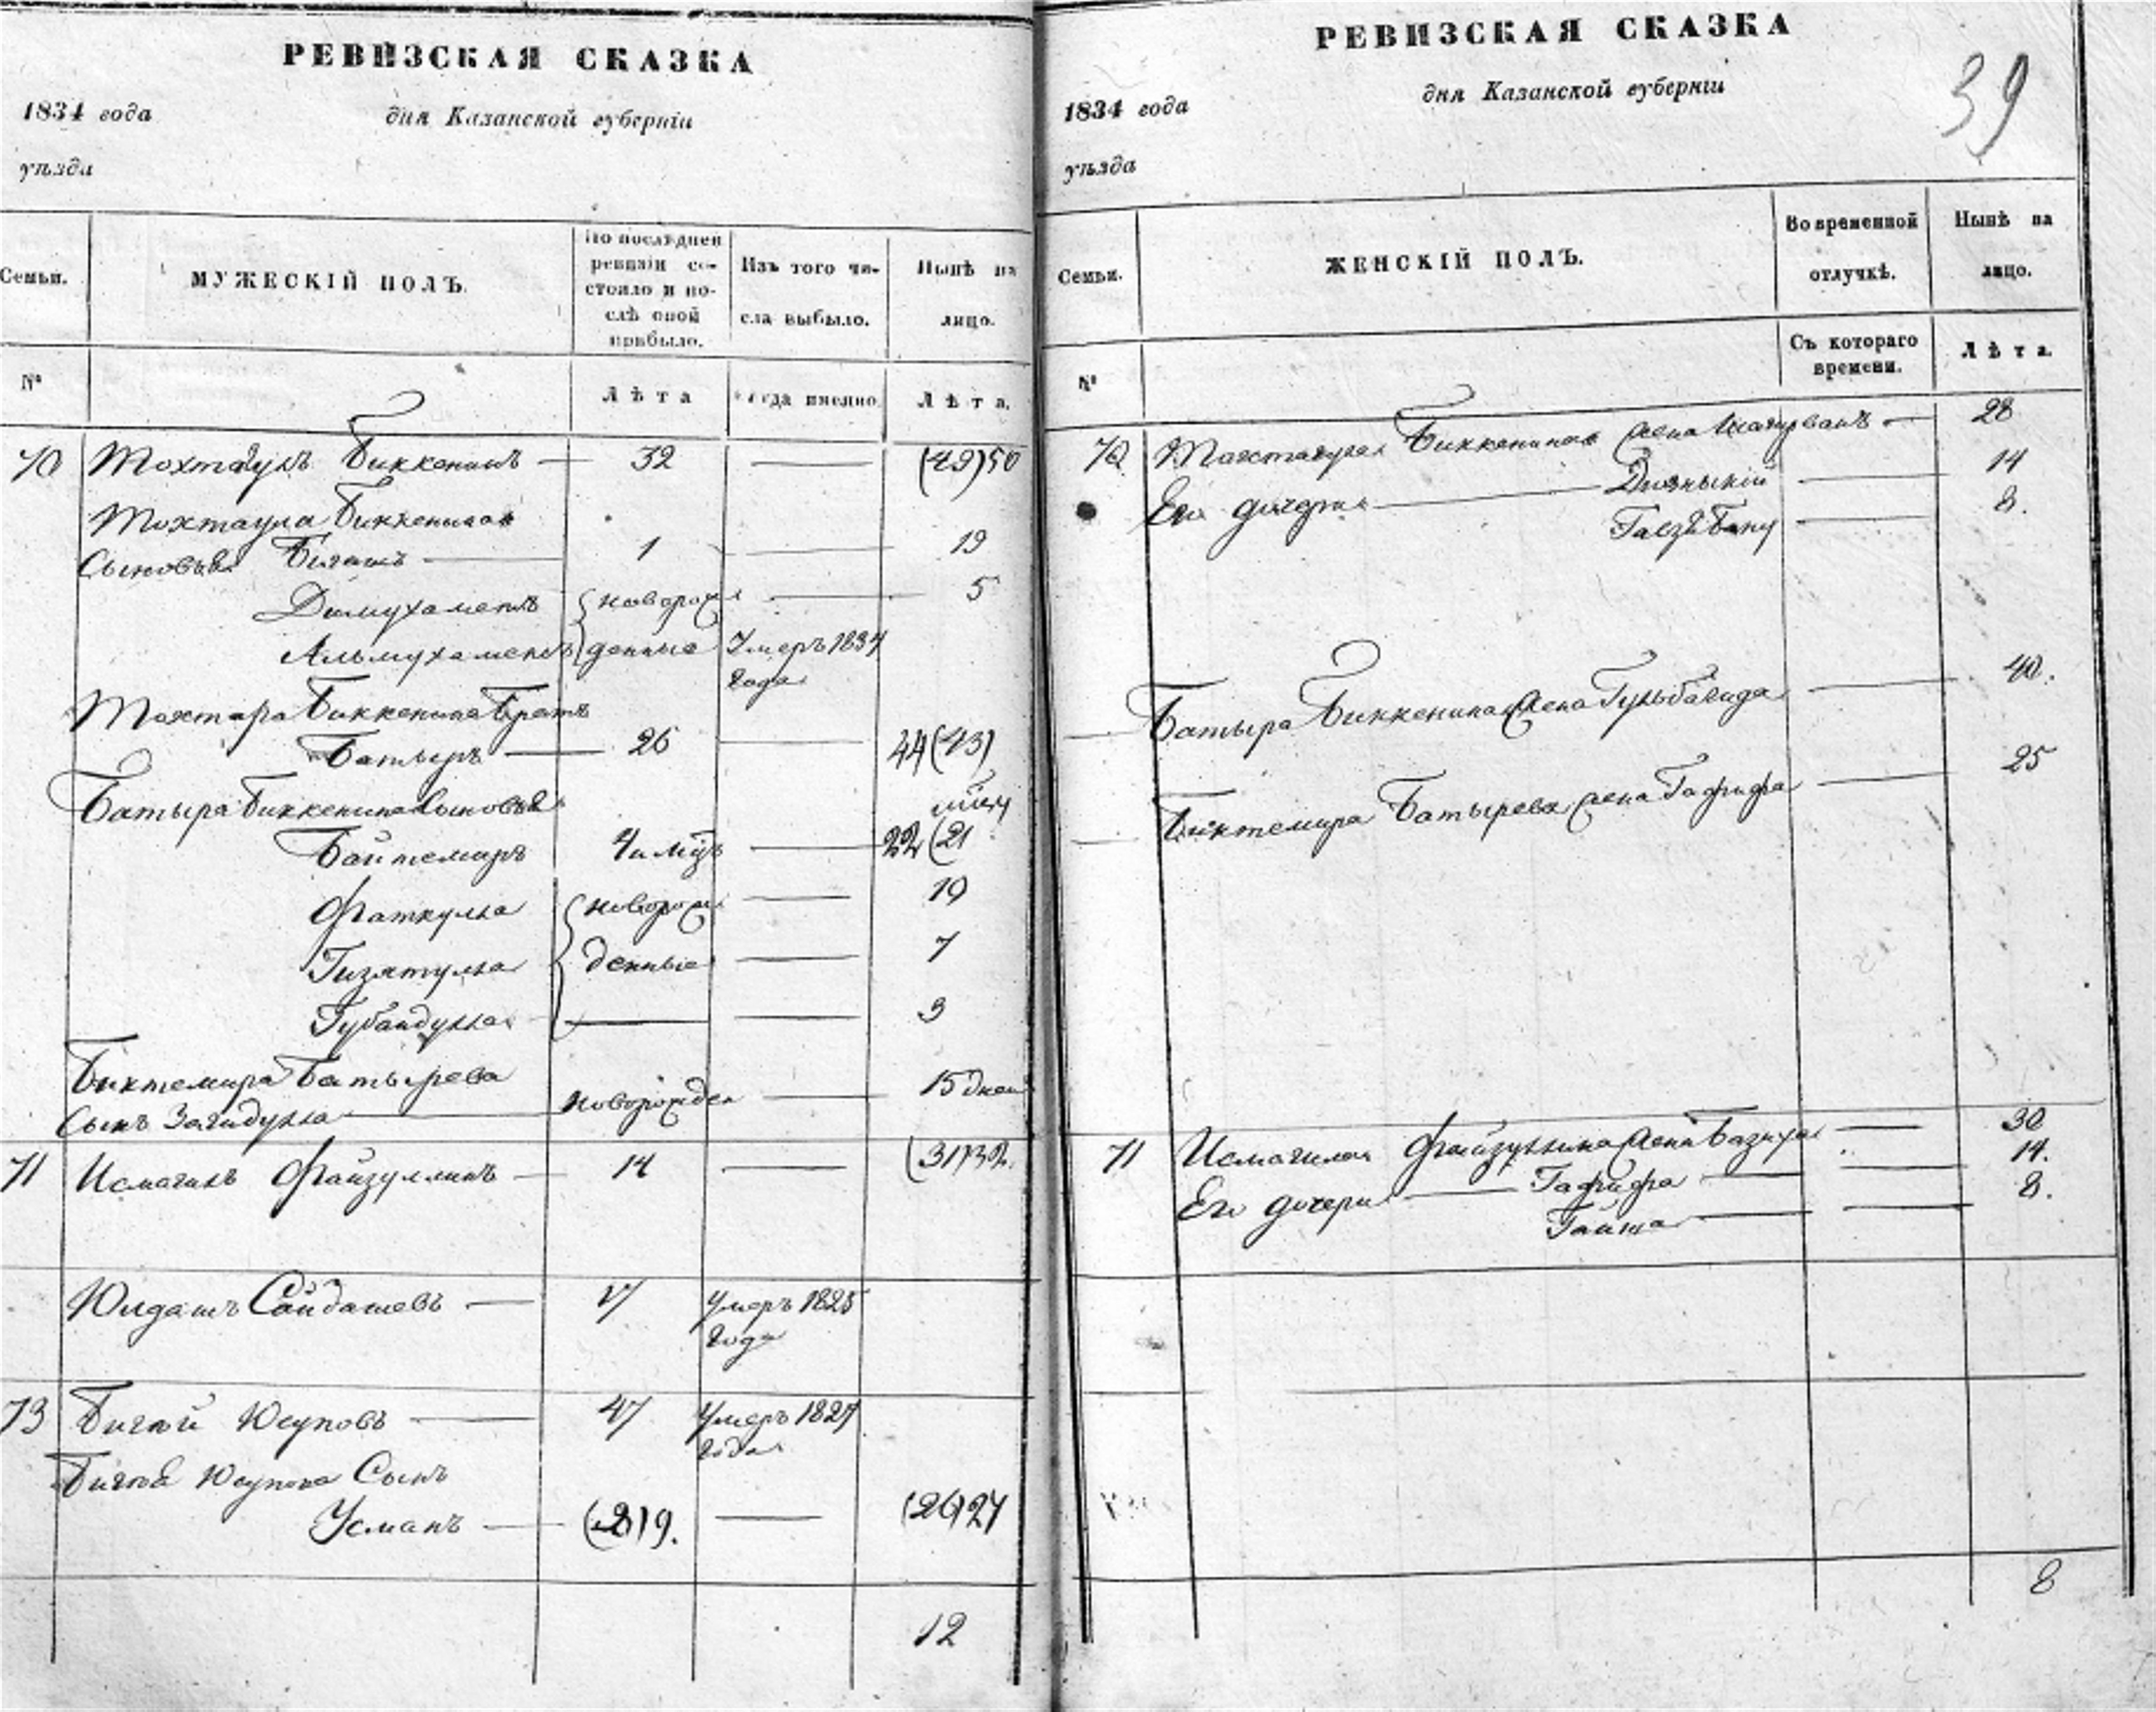 РЕВИЗСКАЯ СКАЗКА
1834 года дня Казанской губерніи
уѣзда
Семьи.
МУЖЕСКІЙ ПОЛЪ.
По послѣдней ревизіи со-
стояло и по-
слѣ оной
прибыло.
Изъ того чи-
сла выбыло.
Нынѣ на
лицо.
№
Лѣта
Когда имянно.
Лѣта.
70 Мохтаулъ Биккенинъ — 32 — (49)50
Мохтаула Биккенина
Сыновья Бигашъ — 1 — 19
Димухаметъ новорож — 5
Альмухаметъ денные Умеръ 1834
года
Биккенина Братъ
Батыръ — 26 — 44(43)
Батыра Биккенина Сыновья
Байтемиръ — 22(21
Фаткулла новорож — 19
Гизятулла денные — 7
Губайдулла — 3
Биктемира Батырева
Сынъ Загидулла — новорожден — 15 дней
71 Исмагилъ Файзуллинъ — 14 — (31)32.
Юлдашъ Сайдашевъ — 17 Умеръ 1825
года
73 Бигтой Юсуповъ — 47 Умеръ 1827
года
Юсупова Сынъ
Усманъ — (8)9. — (26)27
12
РЕВИЗСКАЯ СКАЗКА
39
1834 года дня Казанской губерніи
уѣзда
Семьи.
ЖЕНСКІЙ ПОЛЪ.
Во временной
отлучкѣ.
Нынѣ на
лицо.
№
Съ котораго
времени.
Лѣта.
70 Мохтаула Биккенина жена — 28
Его дочери — 14
8.
Батыра Биккенина жена Гульбагида — 40.
Биктемира Батырева жена Гафифа — 25
71 Исмагила Файзуллина жена Базиря — 30
Его дочери — Гафифа — 14.
Гайша — 8.
8